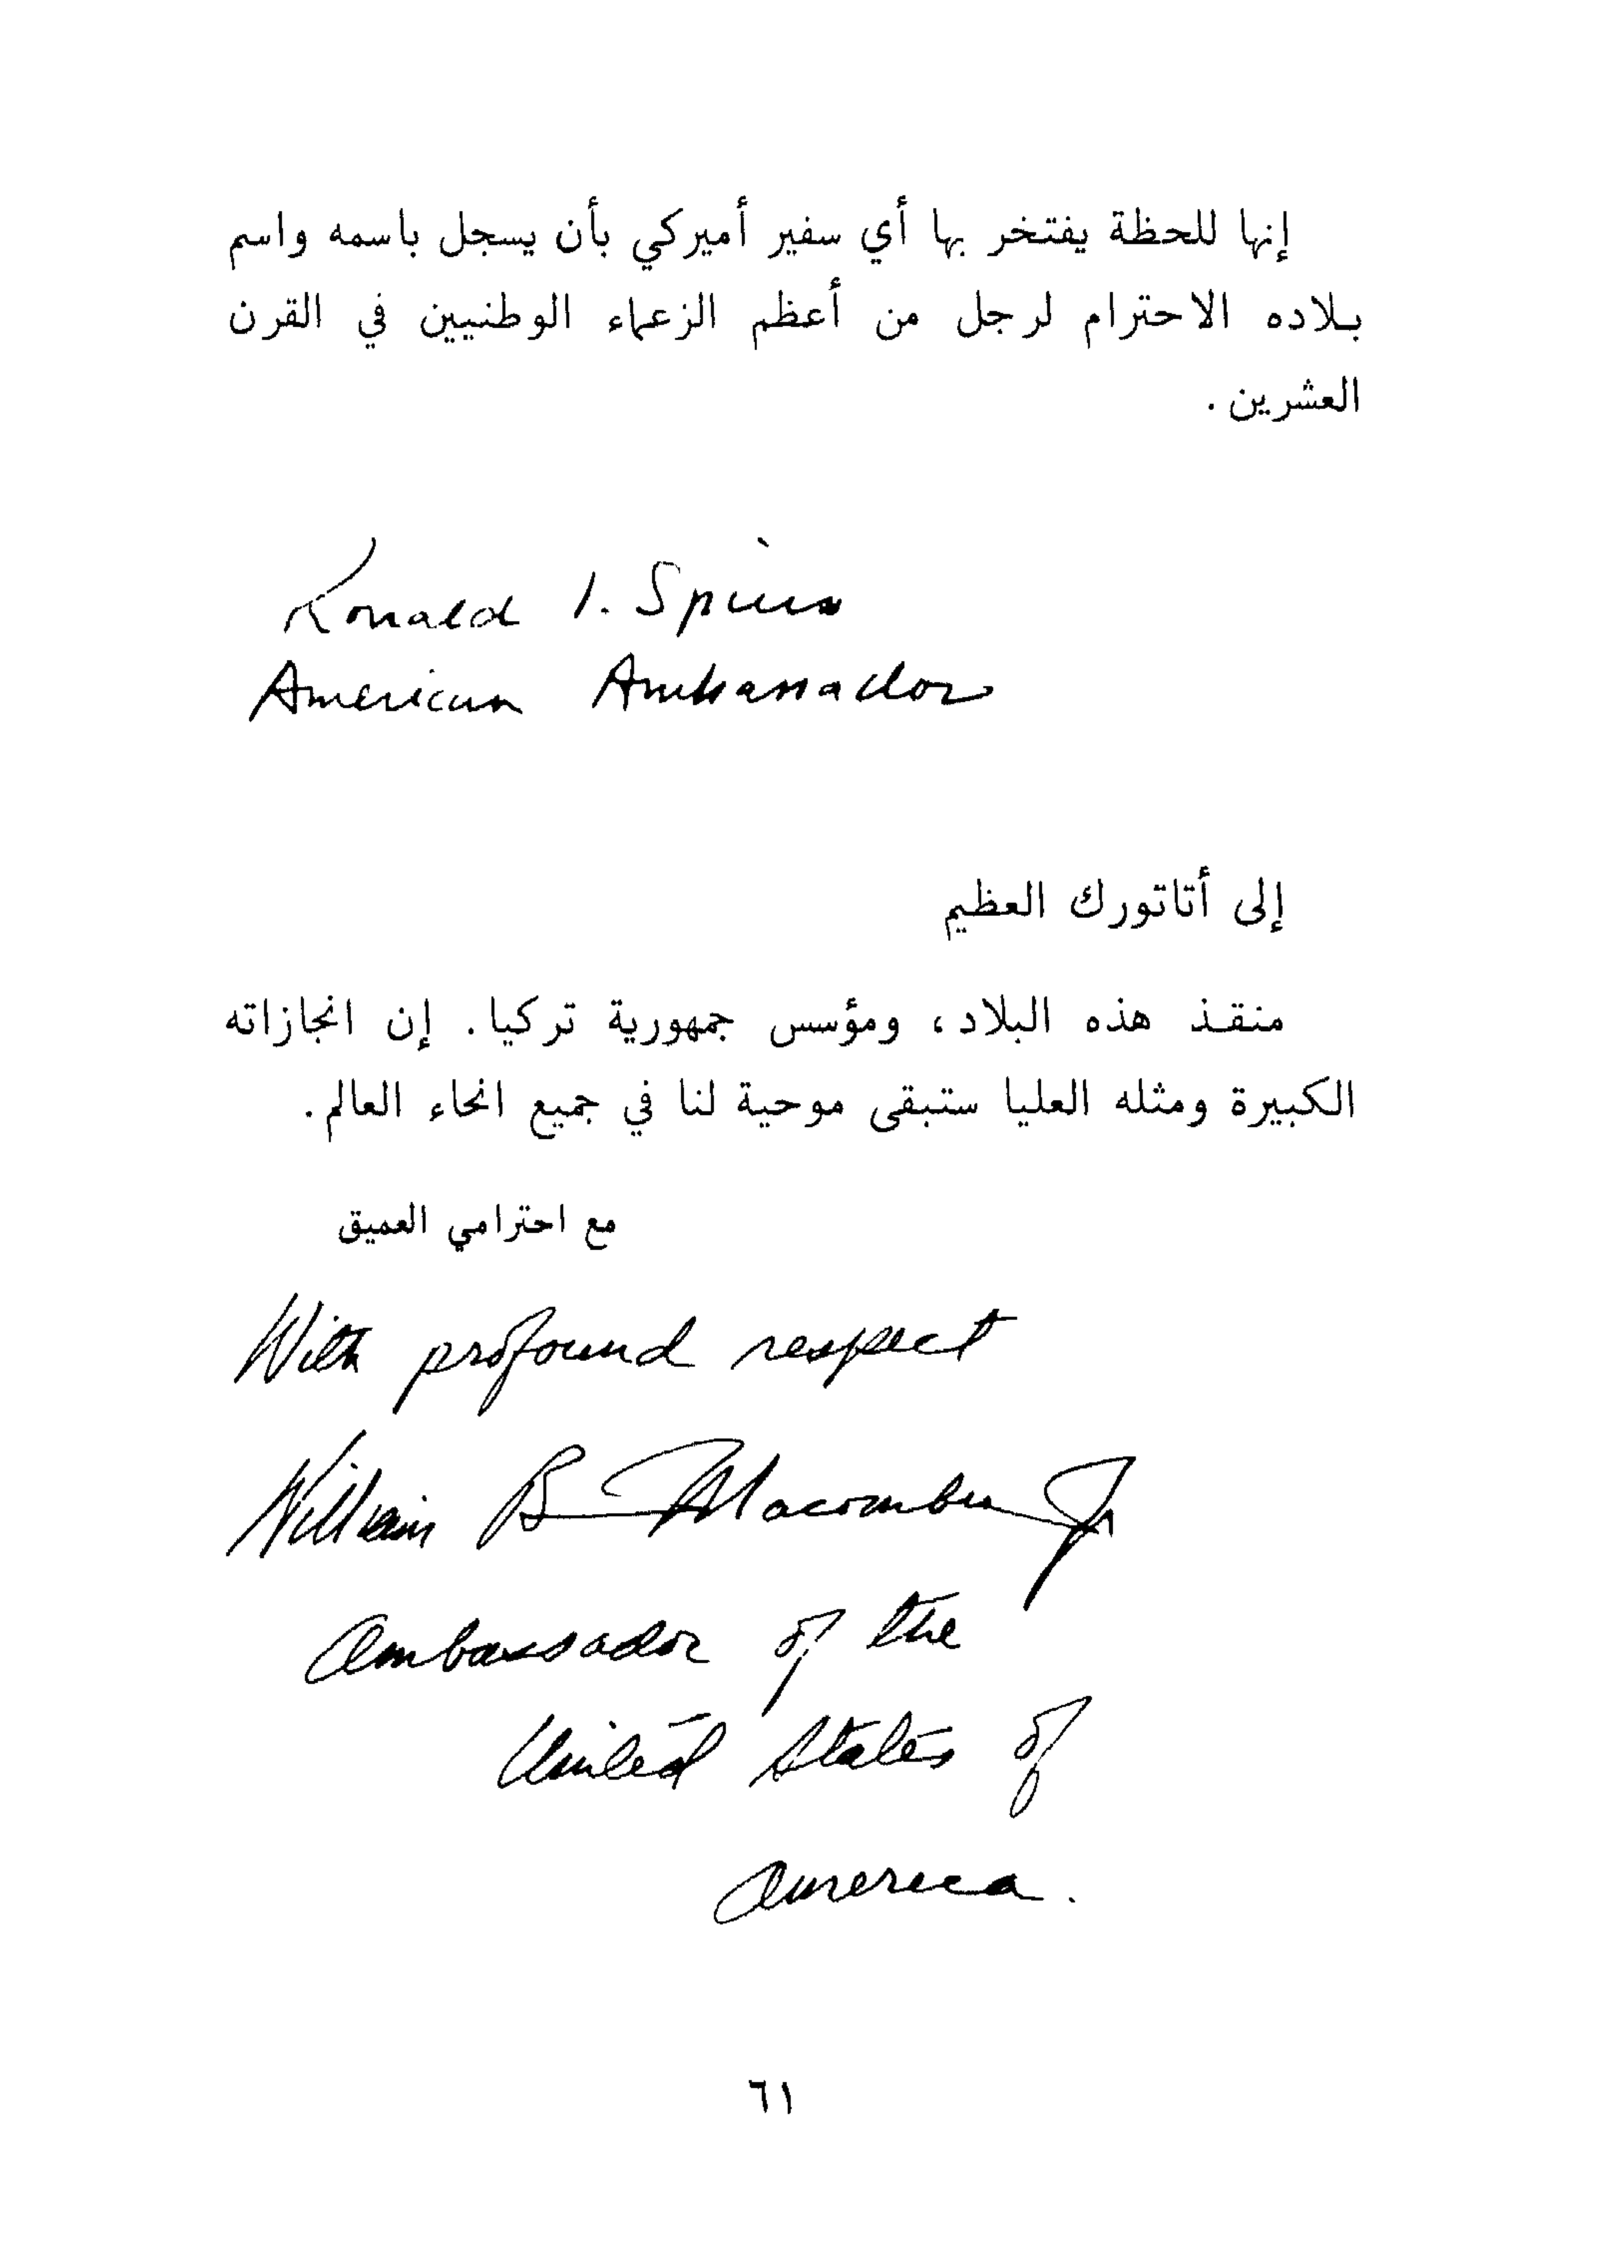 إنها للحظة يفتخر بها أي سفير أميركي بأن يسجل باسمه واسم
بلاده الاحترام لرجل من أعظم الزعماء الوطنيين في القرن
العشرين .
Ronald I. Spiers
American Ambassador
إلى أتاتورك العظيم
منقذ هذه البلاد ، ومؤسس جمهورية تركيا . إن انجازاته
الكبيرة ومثله العليا ستبقى موحية لنا في جميع انحاء العالم .
مع احترامي العميق
With profound respect
William B Macomber Jr
Ambassador of the
United States of
America .
٦١